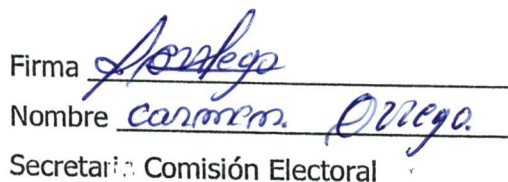 Firma
Nombre Carmen. Orrego.
Secretaria Comisión Electoral